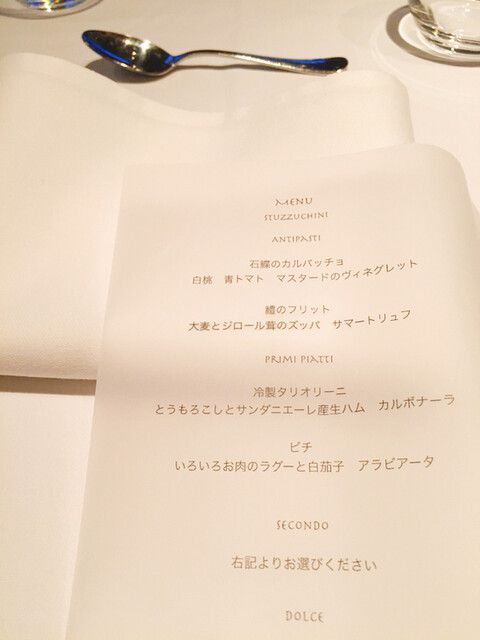 MENU
STUZZUCHINI
ANTIPASTI
石鰈のカルパッチョ
白桃 青トマト マスタードのヴィネグレット
鱧のフリット
大麦とジロール茸のズッパ サマートリュフ
PRIMI PIATTI
冷製タリオリーニ
とうもろこしとサンダニエーレ産生ハム カルボナーラ
ピチ
いろいろお肉のラグーと白茄子 アラビアータ
SECONDO
右記よりお選びください
DOLCE